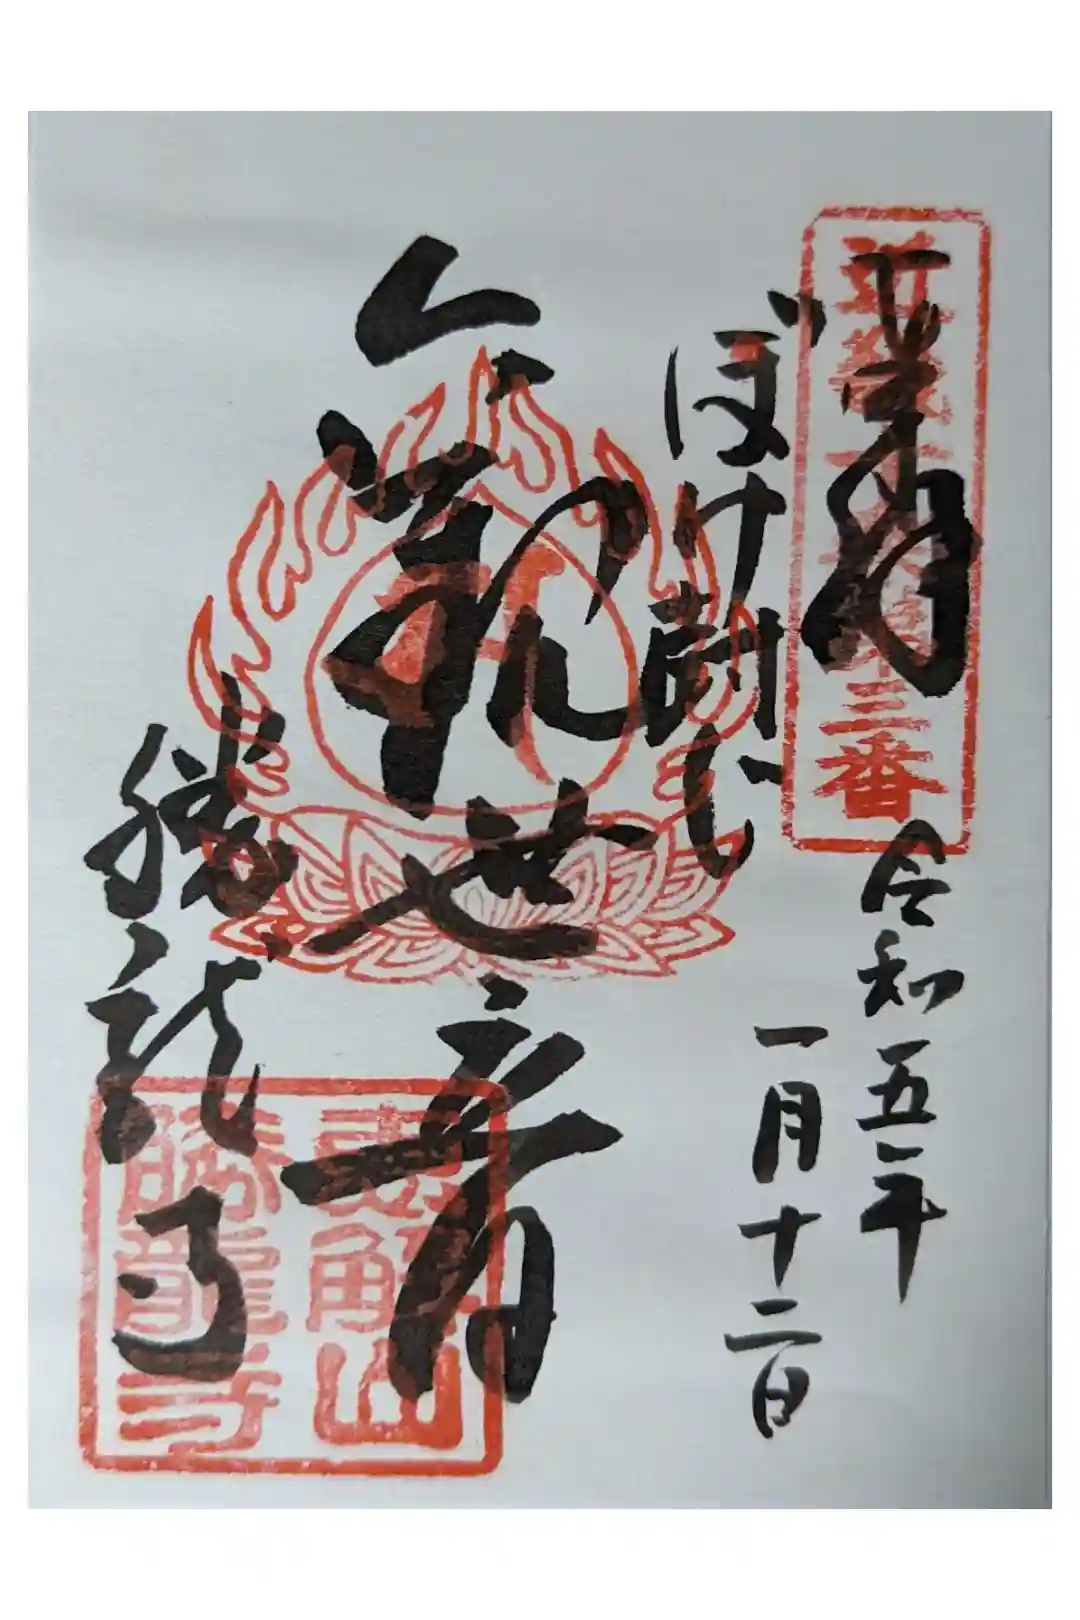 奉拝
令和五年
一月十二日
ぼけ封じ
観世音
勝龍寺
近畿
三番
恵解山
勝龍寺